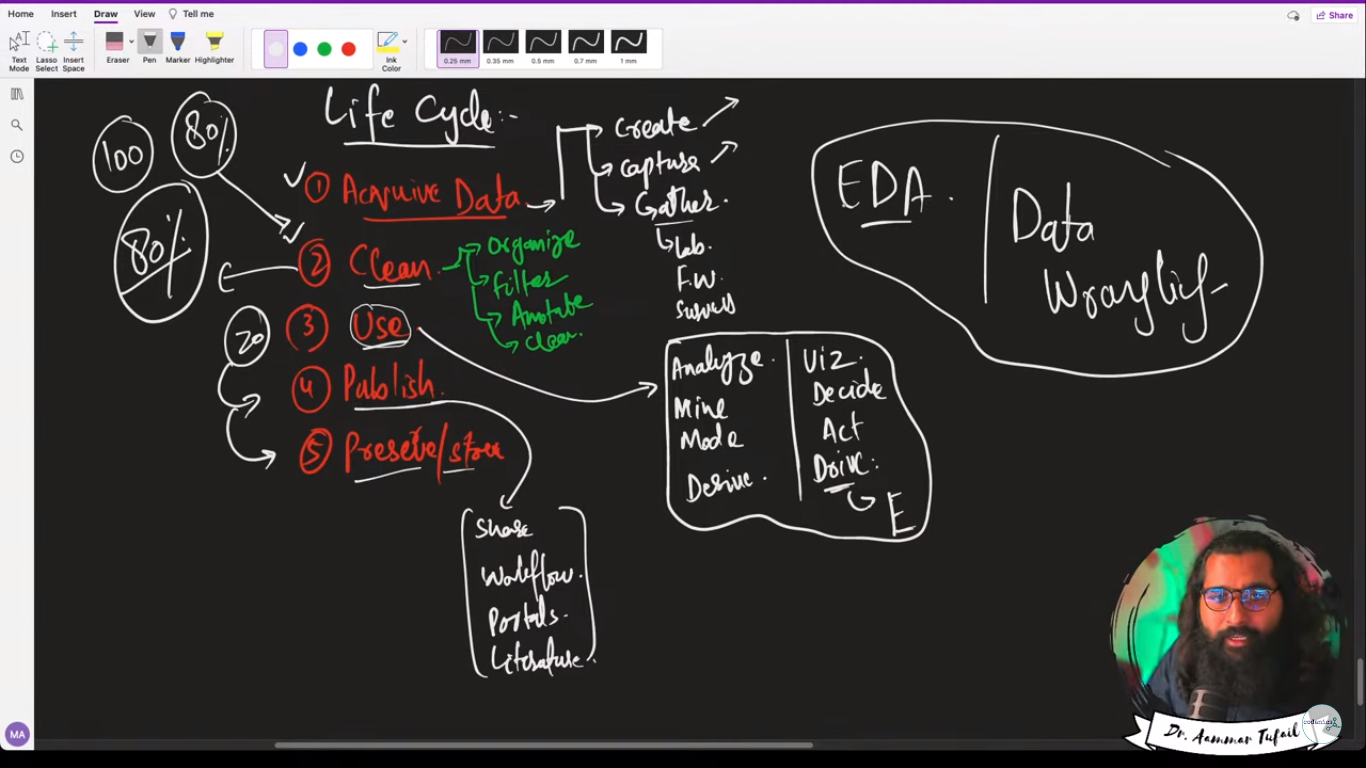 Home Insert Draw View Tell me
Share
Text Mode
Lasso Select
Insert Space
Eraser
Pen
Marker
Highlighter
Ink Color
0.25 mm
0.35 mm
0.5 mm
0.7 mm
1 mm
Life Cycle:-
100
80%
① Acquire Data
Create
Capture
Gather.
Lab.
F.W.
Surveys
80%
② Clean
Organize
Filter
Annotate
Clean.
20
③ Use
Analyze.
Mine
Mode
Derive.
Viz.
Decide
Act
Drive:
E
④ Publish.
Share
Workflow.
Portals.
Literature.
⑤ Preserve/store
EDA.
Data
Wrangling
MA
Dr. Aammar Tufail
codanics